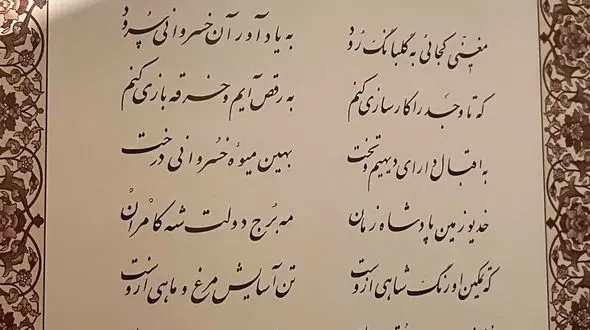 مغنّی کجائی به گلبانگ رود به یاد آور آن خسروانی سرود
که تا وجد را کارسازی کنم به رقص آیم و خرقه بازی کنم
به اقبال دارای دیهیم و تخت بهین میوهٔ خسروانی درخت
خدیو زمین پادشاه زمان مه برج دولت شه کامران
که تمکین اورنگ شاهی ازوست تن آسایش مرغ و ماهی ازوست